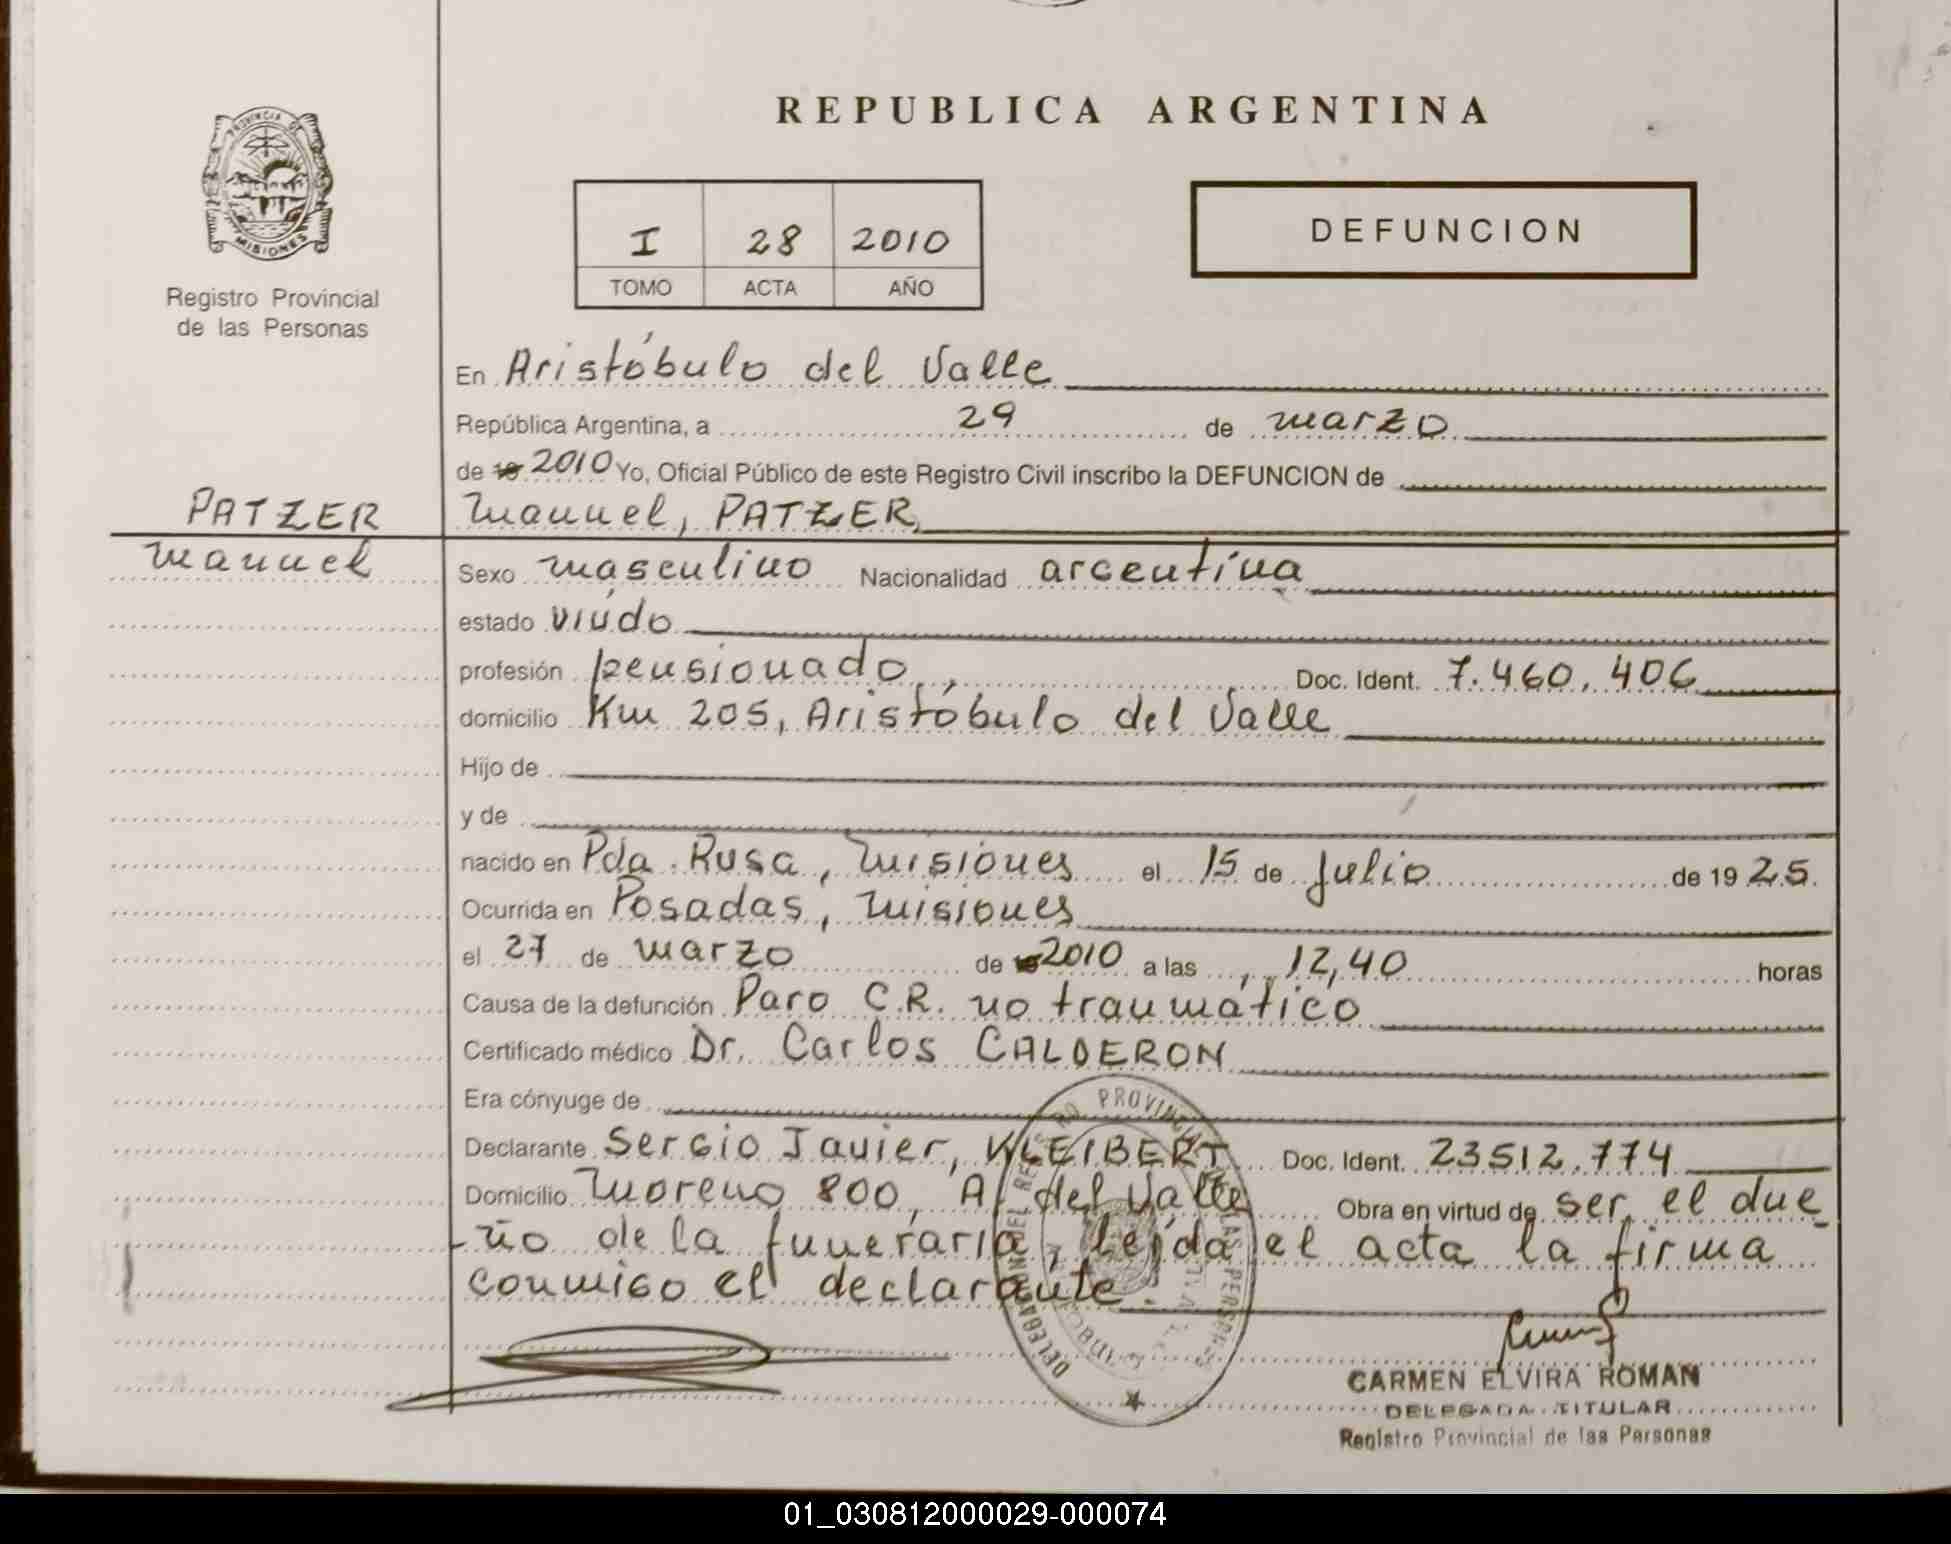 REPUBLICA ARGENTINA
PROVINCIA DE
MISIONES
Registro Provincial
de las Personas
I 28 2010
TOMO ACTA AÑO
DEFUNCION
En Aristóbulo del Valle
República Argentina, a 29 de marzo
de 19 2010 Yo, Oficial Público de este Registro Civil inscribo la DEFUNCION de
PATZER
manuel
manuel, PATZER
Sexo masculino Nacionalidad argentina
estado viúdo
profesión pensionado, Doc. Ident. 7.460.406
domicilio Km 205, Aristóbulo del Valle
Hijo de
y de
nacido en Pda. Rusa, misiones el 15 de julio de 1925.
Ocurrida en Posadas, misiones
el 27 de marzo de 19 2010 a las , 12,40 horas
Causa de la defunción Paro C.R. no traumático
Certificado médico Dr. Carlos CALDERON
Era cónyuge de
Declarante Sergio Javier, KLEIBERT Doc. Ident. 23512.774
Domicilio moreno 800, A. del Valle Obra en virtud de ser el due
-ño de la funeraria, leída el acta la firma
conmigo el declarante.
CARMEN ELVIRA ROMAN
DELEGADA TITULAR
Registro Provincial de las Personas
01_030812000029-000074